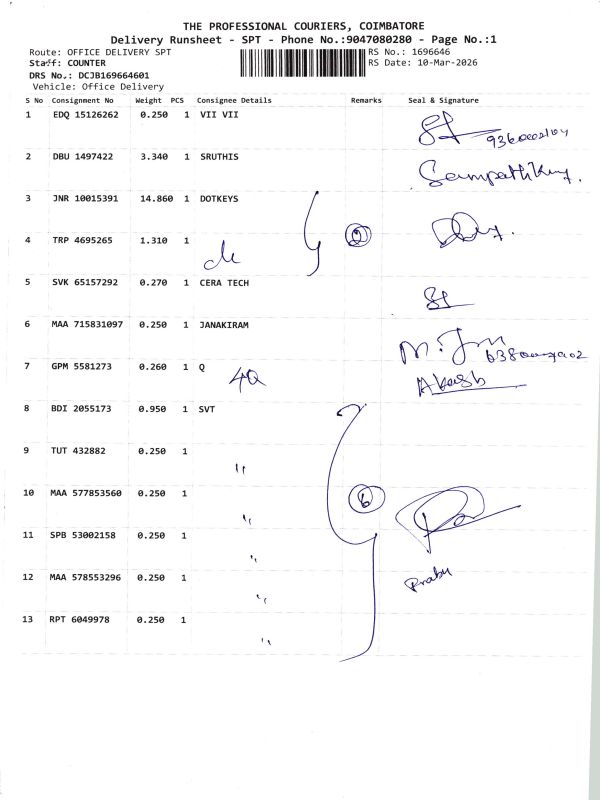 THE PROFESSIONAL COURIERS, COIMBATORE
Delivery Runsheet - SPT - Phone No.:9047080280 - Page No.:1
Route: OFFICE DELIVERY SPT RS No.: 1696646
Staff: COUNTER RS Date: 10-Mar-2026
DRS No.: DCJB169664601
Vehicle: Office Delivery
S No Consignment No Weight PCS Consignee Details Remarks Seal & Signature
1 EDQ 15126262 0.250 1 VII VII
2 DBU 1497422 3.340 1 SRUTHIS
3 JNR 10015391 14.860 1 DOTKEYS
4 TRP 4695265 1.310 1
5 SVK 65157292 0.270 1 CERA TECH
6 MAA 715831097 0.250 1 JANAKIRAM
7 GPM 5581273 0.260 1 Q
4Q Akash
8 BDI 2055173 0.950 1 SVT
9 TUT 432882 0.250 1
"
10 MAA 577853560 0.250 1 6
"
11 SPB 53002158 0.250 1
"
12 MAA 578553296 0.250 1 Prabu
"
13 RPT 6049978 0.250 1
"